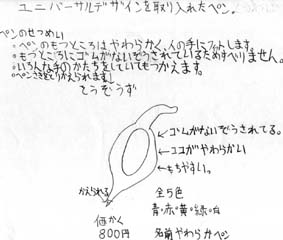 ユニバーサルデザインを取り入れたペン。
ペンのせつめい
。ペンのもつところはやわらかく、人の手にフィットします。
。もつところにゴムがないぞうされているためすべりません。
。いろんな手のかたちをしていてもつかえます。
。ペンさきをとりかえられます。
そうぞうず
←ゴムがないぞうされてる。
←ココがやわらかい
←もちやすい。
かえられる
全5色
青・赤・黄・緑・白
価かく
800円
名前 やわらかペン